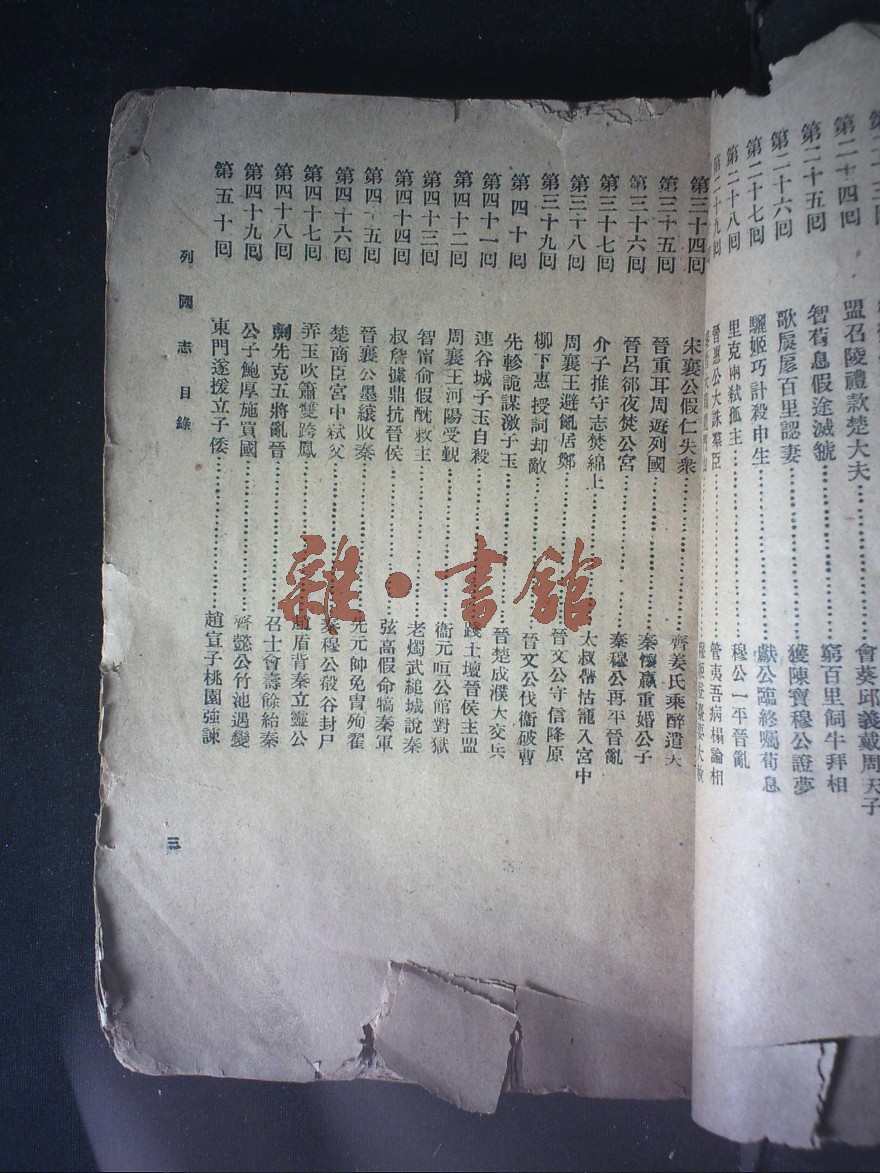 第二十四回 盟召陵禮款楚大夫 會葵邱義戴周天子
第二十五回 智荀息假途滅虢 窮百里飼牛拜相
第二十六回 歌扊扅百里認妻 獲陳寶穆公證夢
第二十七回 驪姬巧計殺申生 獻公臨終囑荀息
第二十八回 里克兩弒孤主 穆公一平晉亂
第二十九回 晉惠公大誅羣臣 管夷吾病榻論相
第三十四回 宋襄公假仁失衆 齊姜氏乘醉遣夫
第三十五回 晉重耳周遊列國 秦懷嬴重婚公子
第三十六回 晉呂郤夜焚公宮 秦穆公再平晉亂
第三十七回 介子推守志焚綿上 太叔帶怙寵入宮中
第三十八回 周襄王避亂居鄭 晉文公守信降原
第三十九回 柳下惠授詞却敵 晉文公伐衞破曹
第四十回 先軫詭謀激子玉 晉楚成濮大交兵
第四十一回 連谷城子玉自殺 踐土壇晉侯主盟
第四十二回 周襄王河陽受覲 衞元咺公館對獄
第四十三回 智甯俞假酖救主 老燭武縋城說秦
第四十四回 叔詹據鼎抗晉侯 弦高假命犒秦軍
第四十五回 晉襄公墨縗敗秦 先元帥免冑殉翟
第四十六回 楚商臣宮中弒父 秦穆公殽谷封尸
第四十七回 弄玉吹簫雙跨鳳 趙盾背秦立靈公
第四十八回 刺先克五將亂晉 召士會壽餘紿秦
第四十九回 公子鮑厚施買國 齊懿公竹池遇變
第五十回 東門遂援立子倭 趙宣子桃園強諫
列國志目錄
三
雜·書館